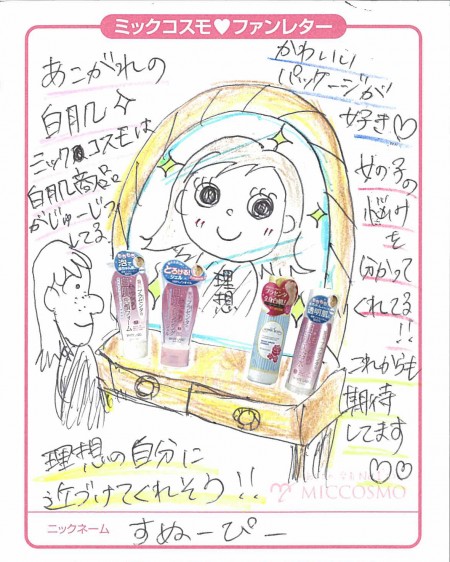 ミックコスモ♥ファンレター
あこがれの
白肌
ミックコスモは
白肌商品
がじゅーじつ
してる
かわいい
パッケージが
好き♡
女の子の
悩みを
分かって
くれてる!!
これからも
期待
してます
♡♡
理想
泡で
とろける!
ジェル
プラセンタ
透明肌
理想の自分に
近づけてくれそう!!
MICCOSMO
ニックネーム
すぬーぴー